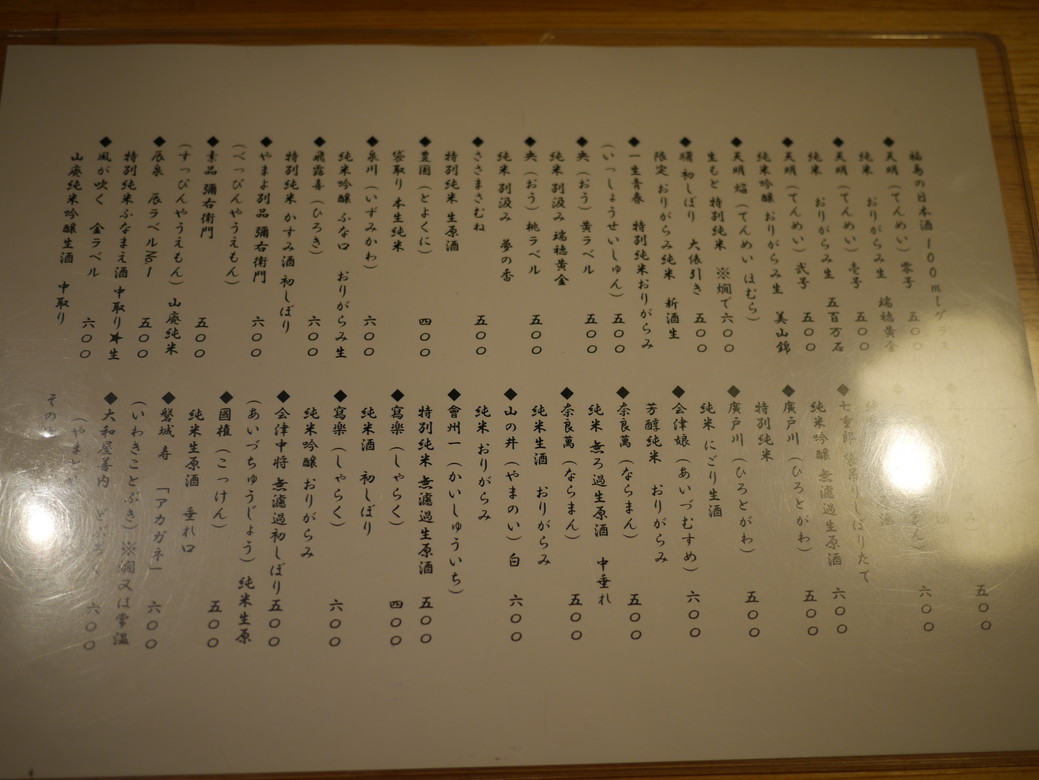 福島の日本酒 100mlグラス
◆天明（てんめい）零号 五〇〇
純米 おりがらみ生 瑞穂黄金
◆天明（てんめい）壱号 五〇〇
純米 おりがらみ生 五百万石
◆天明（てんめい）弐号 五〇〇
純米吟醸 おりがらみ生 美山錦
◆天明 焔（てんめい ほむら）
生もと 特別純米 ※燗で 六〇〇
◆曙 初しぼり 大俵引き 五〇〇
限定 おりがらみ純米 新酒生
◆一生青春 特別純米おりがらみ
（いっしょうせいしゅん） 五〇〇
◆央（おう）黄ラベル 五〇〇
純米 別汲み 瑞穂黄金
◆央（おう）桃ラベル 五〇〇
純米 別汲み 夢の香
◆ささまさむね 五〇〇
特別純米 生原酒
◆豊國（とよくに） 四〇〇
袋取り 本生純米
◆泉川（いずみかわ） 六〇〇
純米吟醸 ふな口 おりがらみ生
◆飛露喜（ひろき） 六〇〇
特別純米 かすみ酒 初しぼり
◆やまよ別品 彌右衛門 六〇〇
（べっぴんやうえもん）
◆素品 彌右衛門 五〇〇
（すっぴんやうえもん）山廃純米
◆辰泉 辰ラベル№1 五〇〇
特別純米ふなまえ酒 中取り★生
◆風が吹く 金ラベル 六〇〇
山廃純米吟醸生酒 中取り
五〇〇
六〇〇
◆七重郎 しぼりたて
純米吟醸 無濾過生原酒 六〇〇
◆廣戸川（ひろとがわ） 五〇〇
特別純米
◆廣戸川（ひろとがわ） 五〇〇
純米 にごり生酒
◆会津娘（あいづむすめ） 六〇〇
芳醇純米 おりがらみ
◆奈良萬（ならまん） 五〇〇
純米 無ろ過生原酒 中垂れ
◆奈良萬（ならまん） 五〇〇
純米生酒 おりがらみ
◆山の井（やまのい）白 六〇〇
純米 おりがらみ
◆會州一（かいしゅういち）
特別純米 無濾過生原酒 五〇〇
◆寫楽（しゃらく） 四〇〇
純米酒 初しぼり
◆寫楽（しゃらく） 六〇〇
純米吟醸 おりがらみ
◆会津中将 無濾過初しぼり 五〇〇
（あいづちゅうじょう）純米生原
◆國権（こっけん） 五〇〇
純米生原酒 垂れ口
◆磐城 寿 「アカガネ」 六〇〇
（いわきことぶき）※燗又は常温
◆大和屋善内 どぶろく 六〇〇
（やまとや
その